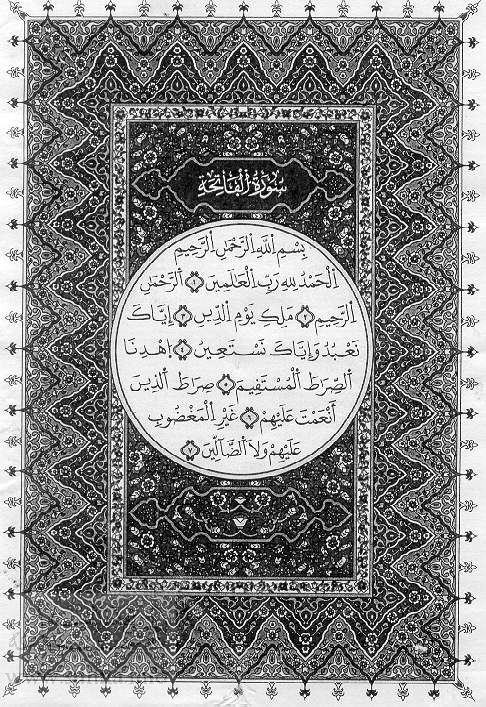 سُورَةُ الْفَاتِحَة
بِسْمِ اللَّهِ الرَّحْمَٰنِ الرَّحِيمِ
الْحَمْدُ لِلهِ رَبِّ الْعَالَمِينَ ١ الرَّحْمَٰنِ
الرَّحِيمِ ٢ مَلِكِ يَوْمِ الدِّينِ ٣ إِيَّاكَ
نَعْبُدُ وَإِيَّاكَ نَسْتَعِينُ ٤ اِهْدِنَا
الصِّرَاطَ الْمُسْتَقِيمَ ٥ صِرَاطَ الَّذِينَ
أَنْعَمْتَ عَلَيْهِمْ ٦ غَيْرِ الْمَغْضُوبِ
عَلَيْهِمْ وَلَا الضَّالِّينَ ٧